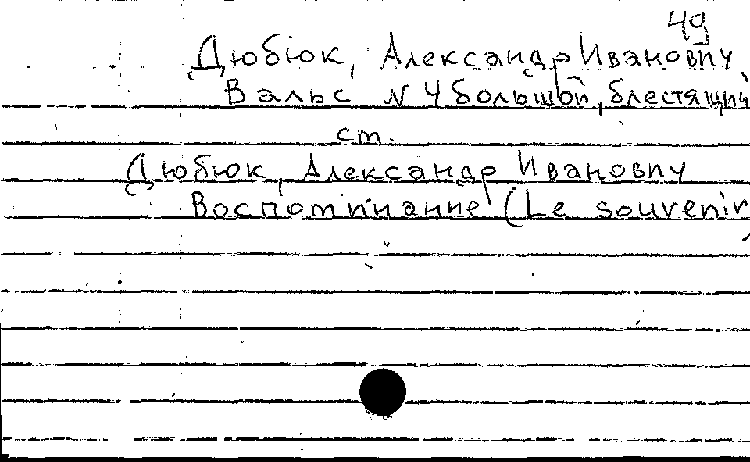 49
Дюбюк, Александр Иванович
Вальс N 4 большой, блестящий
см.
Дюбюк, Александр Иванович
Воспоминание (Le souvenir